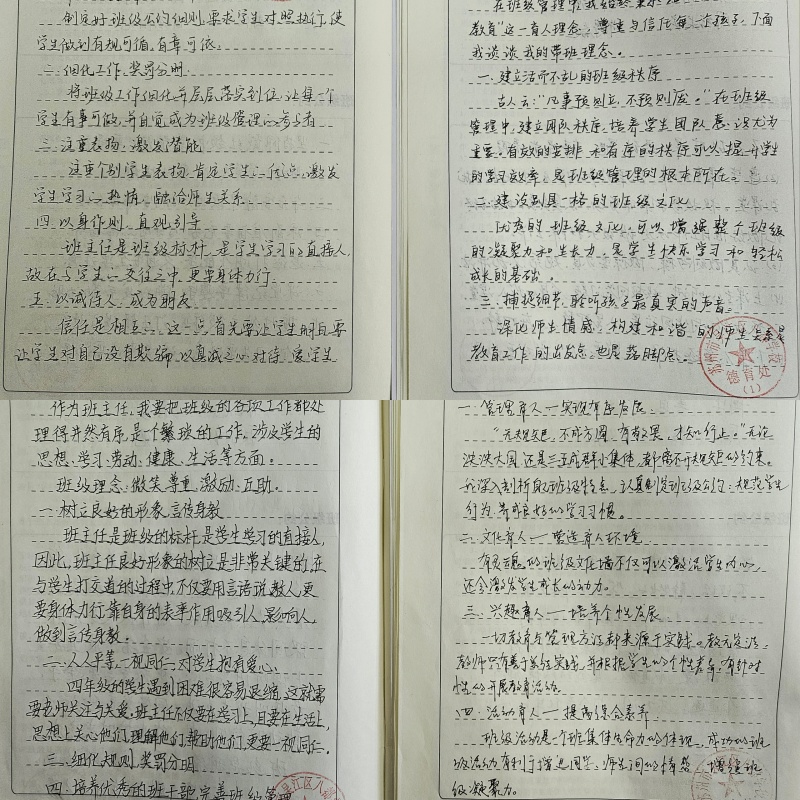 制定好班级公约细则,要求学生对照执行,使
学生做到有规可循,有章可依。
二.细化工作,奖罚分明
将班级工作细化并层层落实到位,让每一个
学生有事可做,并自觉成为班级管理的参与者
三.注重表扬,激发潜能
注重个别学生表扬,肯定学生优点,激发
学生学习热情,融洽师生关系
四.以身作则,直观引导
班主任是班级标杆,是学生学习的直接人,
故在与学生交往之中,更要身体力行
五.以诚待人,成为朋友
信任是相互,这一点首先要让学生明白,要
让学生对自己没有欺骗,以真诚之心对待,爱学生
在班级管理中,我始终秉承
教育"这一育人理念,尊重与信任每一个孩子,下面
我谈谈我的带班理念。
一.建立活而不乱的班级秩序
古人云:"凡事预则立,不预则废。"在班级
管理中,建立团队秩序,培养学生团队意识尤为
重要。有效的安排和有序的秩序可以提升学生
的学习效率,是班级管理的根本所在。
二.建设别具一格的班级文化
优秀的班级文化,可以增强整个班级
的凝聚力和生长力,是学生快乐学习和轻松
成长的基础。
三.捕捉细节,聆听孩子最真实的声音
深化师生情感,构建和谐的师生关系是
教育工作的出发点,也是落脚点。
德育处
(1)
作为班主任,我要把班级的各项工作都处
理得井然有序是个繁琐的工作,涉及学生的
思想、学习、劳动、健康、生活等方面。
班级理念:微笑、尊重、激励、互助。
一.树立良好的形象,言传身教
班主任是班级的标杆是学生学习的直接人,
因此,班主任良好形象的树立是非常关键的,在
与学生打交道的过程中,不仅要用言语说教人,更
要身体力行,靠自身的表率作用吸引人,影响人,
做到言传身教。
二.人人平等,一视同仁,对学生抱有爱心.
四年级的学生遇到困难很容易退缩,这就需
要老师关注与关爱,班主任不仅要在学习上,且要在生活上,
思想上关心他们,理解他们,帮助他们,更要一视同仁.
三.细化规则,奖罚分明
四.培养优秀的班干部,完善班级管理
一.管理育人——实现有序发展
"无规矩,不成方圆,有敬畏,才知行止。"无论
泱泱大国,还是三五成群小集体,都离不开规矩的约束。
我深入剖析班级特点,认真制定班级公约,规范学生
行为,养成良好的学习习惯。
二.文化育人——营造育人环境
有灵魂的班级文化墙不仅可以激活学生内心,
还会激发学生成长的动力。
三.兴趣育人——培养个性发展
一切教育与管理方法都来源于实践。教无定法,
教师只有善于总结实践,并根据学生的个性差异,有针对
性的开展教育活动。
四.活动育人——提高综合素养
班级活动是一个班集体生命力的体现,成功的班
级活动有利于增进同学、师生间的情节,增强班
级凝聚力。